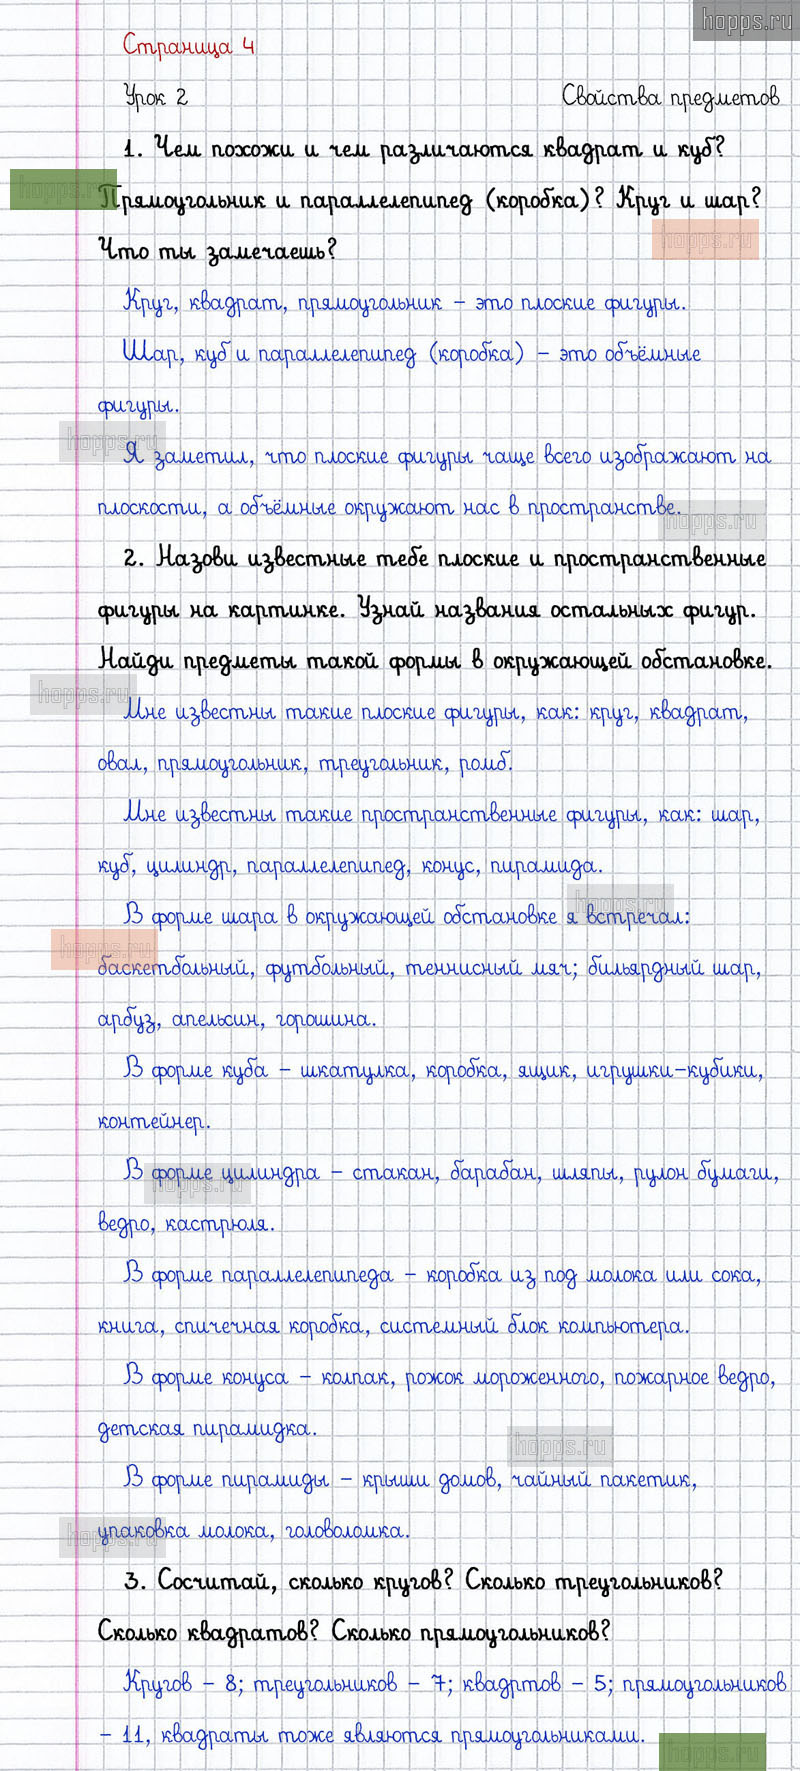 hopps.ru
Страница 4
Урок 2 Свойства предметов
1. Чем похожи и чем различаются квадрат и куб?
hopps.ru
Прямоугольник и параллелепипед (коробка)? Круг и шар?
hopps.ru
Что ты замечаешь?
Круг, квадрат, прямоугольник – это плоские фигуры.
Шар, куб и параллелепипед (коробка) – это объёмные
фигуры.
hopps.ru
Я заметил, что плоские фигуры чаще всего изображают на
плоскости, а объёмные окружают нас в пространстве.
hopps.ru
2. Назови известные тебе плоские и пространственные
фигуры на картинке. Узнай названия остальных фигур.
Найди предметы такой формы в окружающей обстановке.
hopps.ru
Мне известны такие плоские фигуры, как: круг, квадрат,
овал, прямоугольник, треугольник, ромб.
Мне известны такие пространственные фигуры, как: шар,
куб, цилиндр, параллелепипед, конус, пирамида.
hopps.ru
В форме шара в окружающей обстановке я встречал:
hopps.ru
баскетбольный, футбольный, теннисный мяч; бильярдный шар,
арбуз, апельсин, горошина.
В форме куба – шкатулка, коробка, ящик, игрушки-кубики,
контейнер.
В форме цилиндра – стакан, барабан, шляпы, рулон бумаги,
hopps.ru
ведро, кастрюля.
В форме параллелепипеда – коробка из под молока или сока,
книга, спичечная коробка, системный блок компьютера.
В форме конуса – колпак, рожок мороженного, пожарное ведро,
детская пирамидка.
hopps.ru
В форме пирамиды – крыши домов, чайный пакетик,
упаковка молока, головоломка.
hopps.ru
3. Сосчитай, сколько кругов? Сколько треугольников?
Сколько квадратов? Сколько прямоугольников?
Кругов – 8; треугольников – 7; квадртов – 5; прямоугольников
– 11, квадраты тоже являются прямоугольниками.
hopps.ru